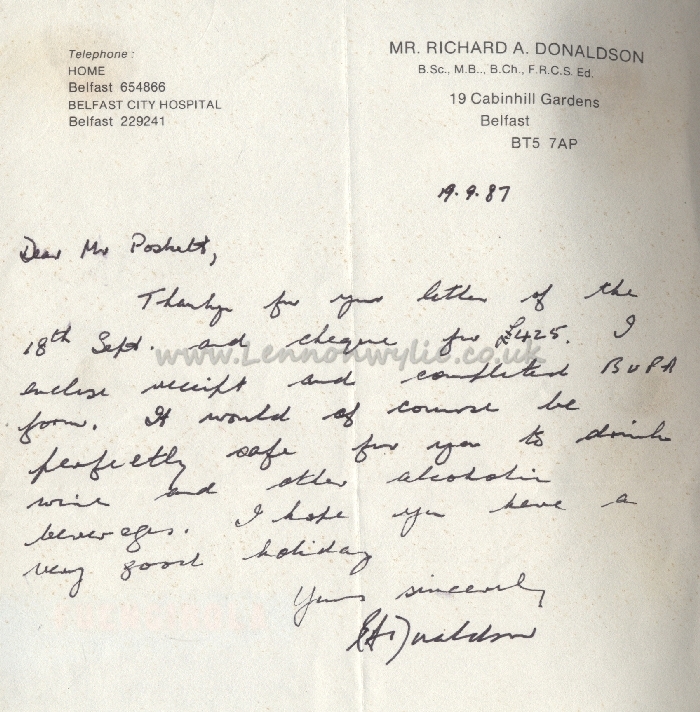 Telephone :
HOME
Belfast 654866
BELFAST CITY HOSPITAL
Belfast 229241
MR. RICHARD A. DONALDSON
B.Sc., M.B., B.Ch., F.R.C.S. Ed.
19 Cabinhill Gardens
Belfast
BT5 7AP
19.9.87
Dear Mr Poskett,
Thanks for your letter of the
18th Sept. and cheque for £425. I
www.Lennonwylie.co.uk
enclose receipt and completed BUPA
form. It would of course be
perfectly safe for you to drink
wine and other alcoholic
beverages. I hope you have a
very good holiday
Yours sincerely
RADonaldson